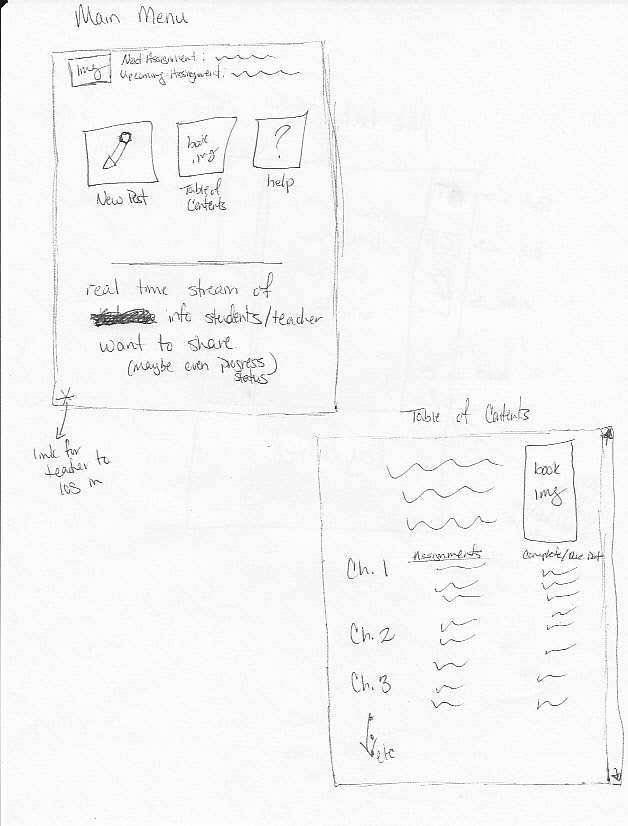 Main Menu
img
Next Assignment:
Upcoming Assignment:
book
img
?
New Post
Table of
Contents
help
real time stream of
info students/teacher
want to share
(maybe even progress
status)
link for
teacher to
log in
Table of Contents
book
img
Assignments
Complete/Due Date
Ch. 1
Ch. 2
Ch. 3
etc